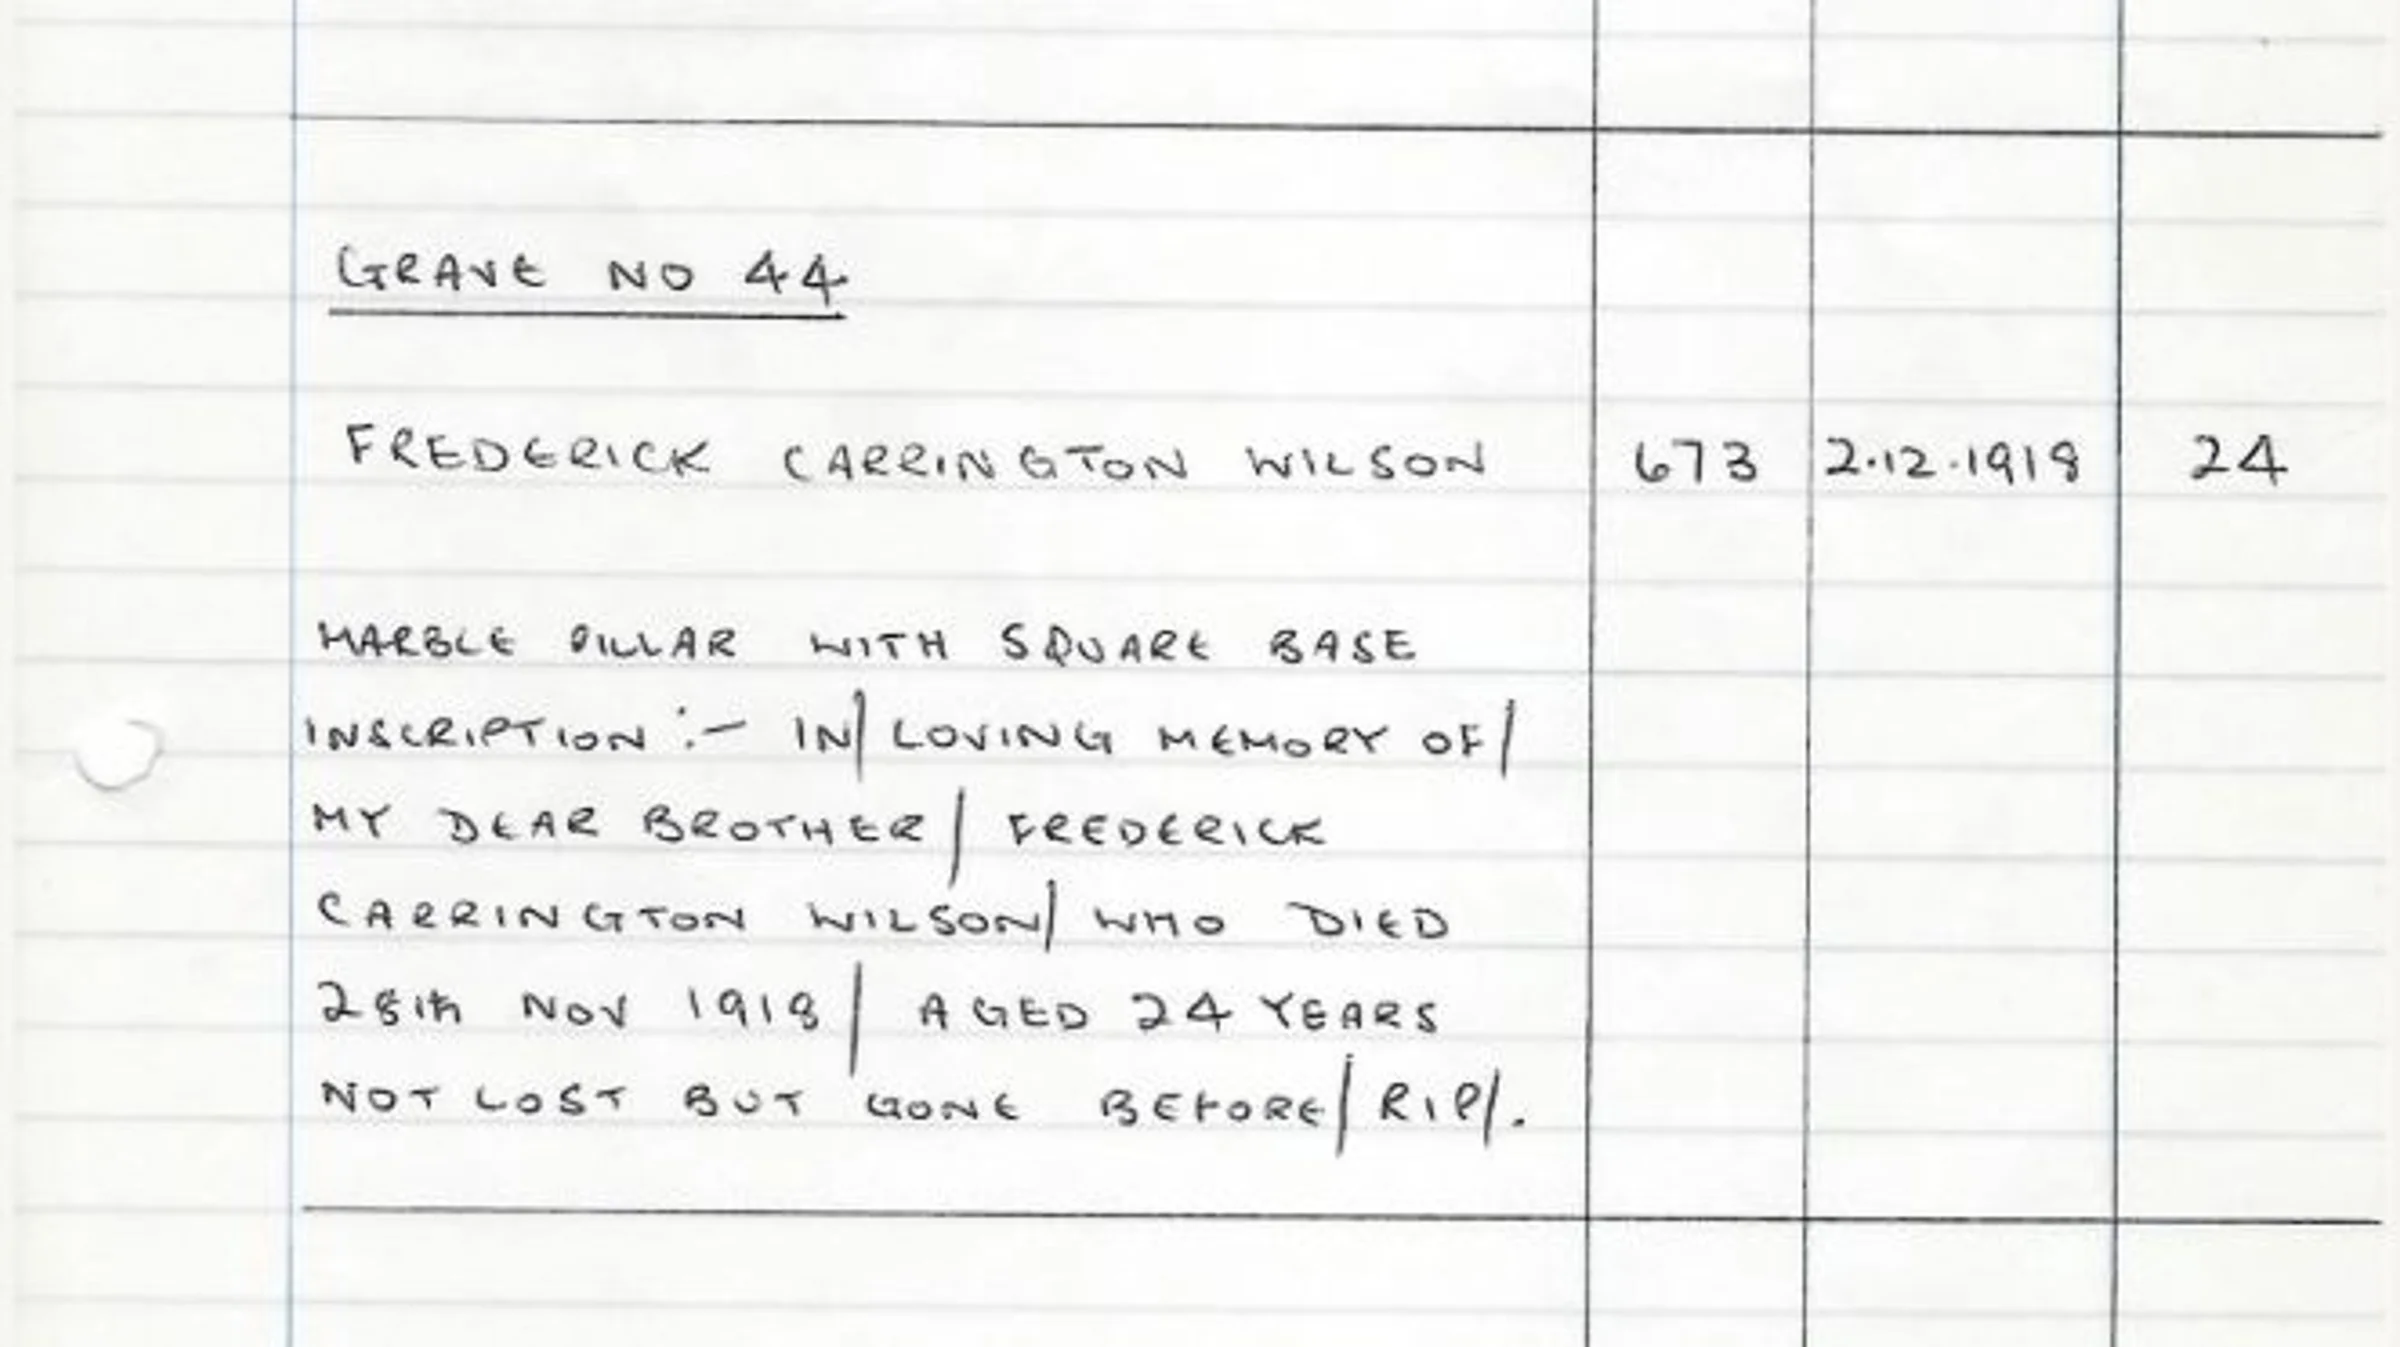 GRAVE NO 44
FREDERICK CARRINGTON WILSON 673 2.12.1918 24
MARBLE PILLAR WITH SQUARE BASE
INSCRIPTION :- IN/ LOVING MEMORY OF/
MY DEAR BROTHER/ FREDERICK
CARRINGTON WILSON/ WHO DIED
28th NOV 1918/ AGED 24 YEARS
NOT LOST BUT GONE BEFORE/ RIP/.